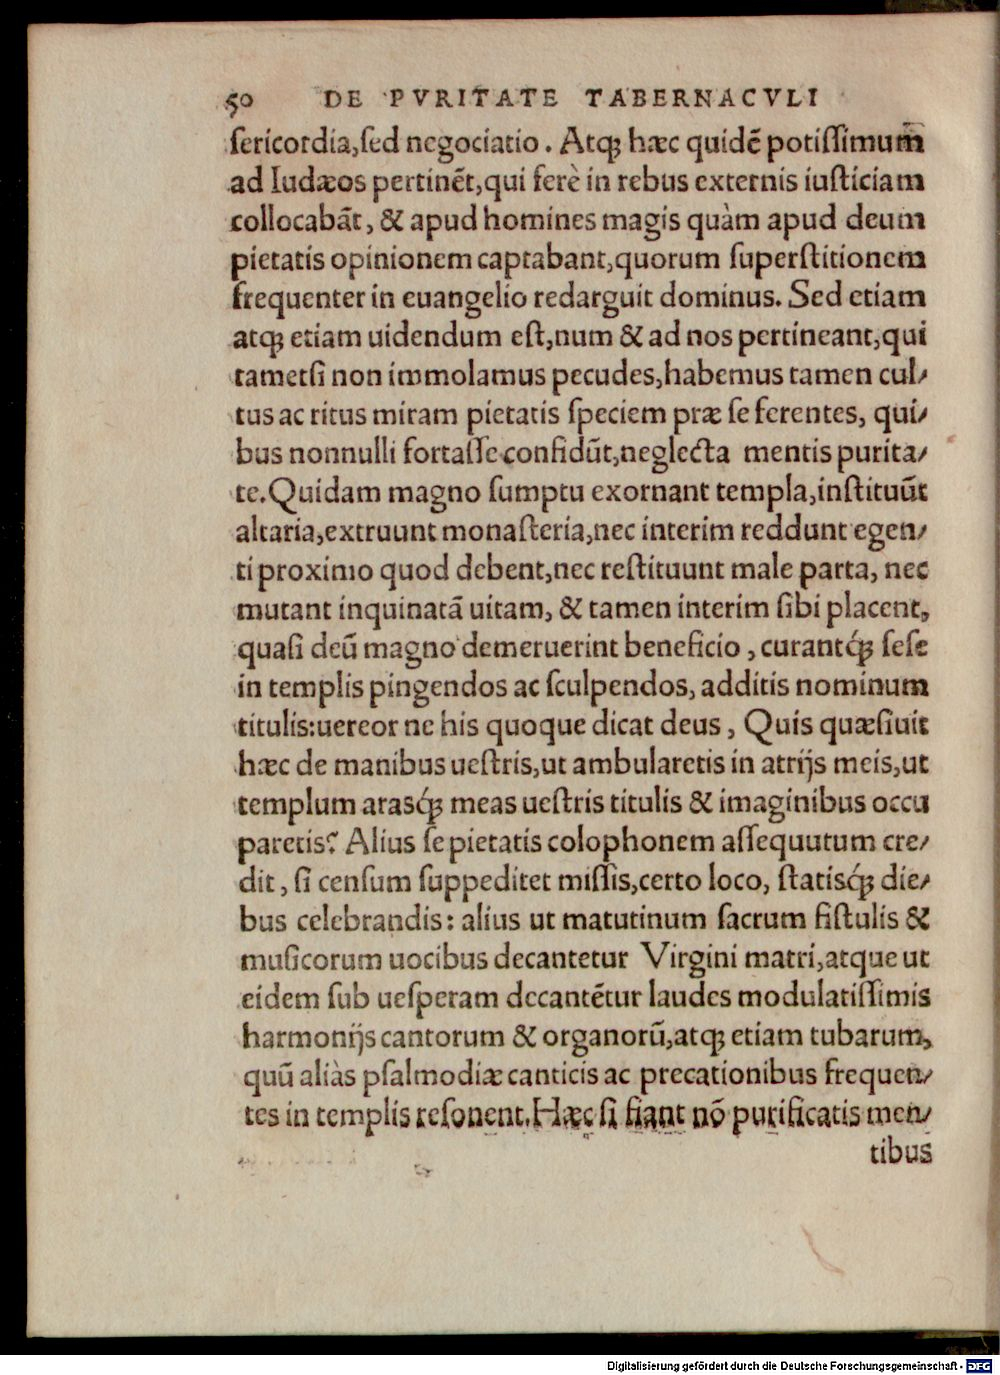 50 DE PVRITATE TABERNACVLI
ſericordia,ſed negociatio. Atqꝫ hæc quidē potiſſimum
ad Iudæos pertinēt,qui ferè in rebus externis iuſticiam
collocabāt, & apud homines magis quàm apud deum
pietatis opinionem captabant,quorum ſuperſtitionem
frequenter in euangelio redarguit dominus. Sed etiam
atqꝫ etiam uidendum eſt,num & ad nos pertineant,qui
tametſi non immolamus pecudes,habemus tamen cul⸗
tus ac ritus miram pietatis ſpeciem præ ſe ferentes, qui⸗
bus nonnulli fortaſſe confidūt,neglecta mentis purita⸗
te.Quidam magno ſumptu exornant templa,inſtituūt
altaria,extruunt monaſteria,nec interim reddunt egen⸗
ti proximo quod debent,nec reſtituunt male parta, nec
mutant inquinatā uitam, & tamen interim ſibi placent,
quaſi deū magno demeruerint beneficio, curantq́ꝫ ſeſe
in templis pingendos ac ſculpendos, additis nominum
titulis:uereor ne his quoque dicat deus, Quis quæſiuit
hæc de manibus ueſtris,ut ambularetis in atrijs meis,ut
templum arasq́ꝫ meas ueſtris titulis & imaginibus occu
paretis? Alius ſe pietatis colophonem aſſequutum cre⸗
dit, ſi cenſum ſuppeditet miſſis,certo loco, ſtatisq́ꝫ die⸗
bus celebrandis: alius ut matutinum ſacrum fiſtulis &
muſicorum uocibus decantetur Virgini matri,atque ut
eidem ſub ueſperam decantētur laudes modulatiſſimis
harmonijs cantorum & organorū,atqꝫ etiam tubarum,
quū aliàs pſalmodiæ canticis ac precationibus frequen⸗
tes in templis reſonent.Hæc ſi fiant nō purificatis men⸗
tibus
Digitalisierung gefördert durch die Deutsche Forschungsgemeinschaft - DFG